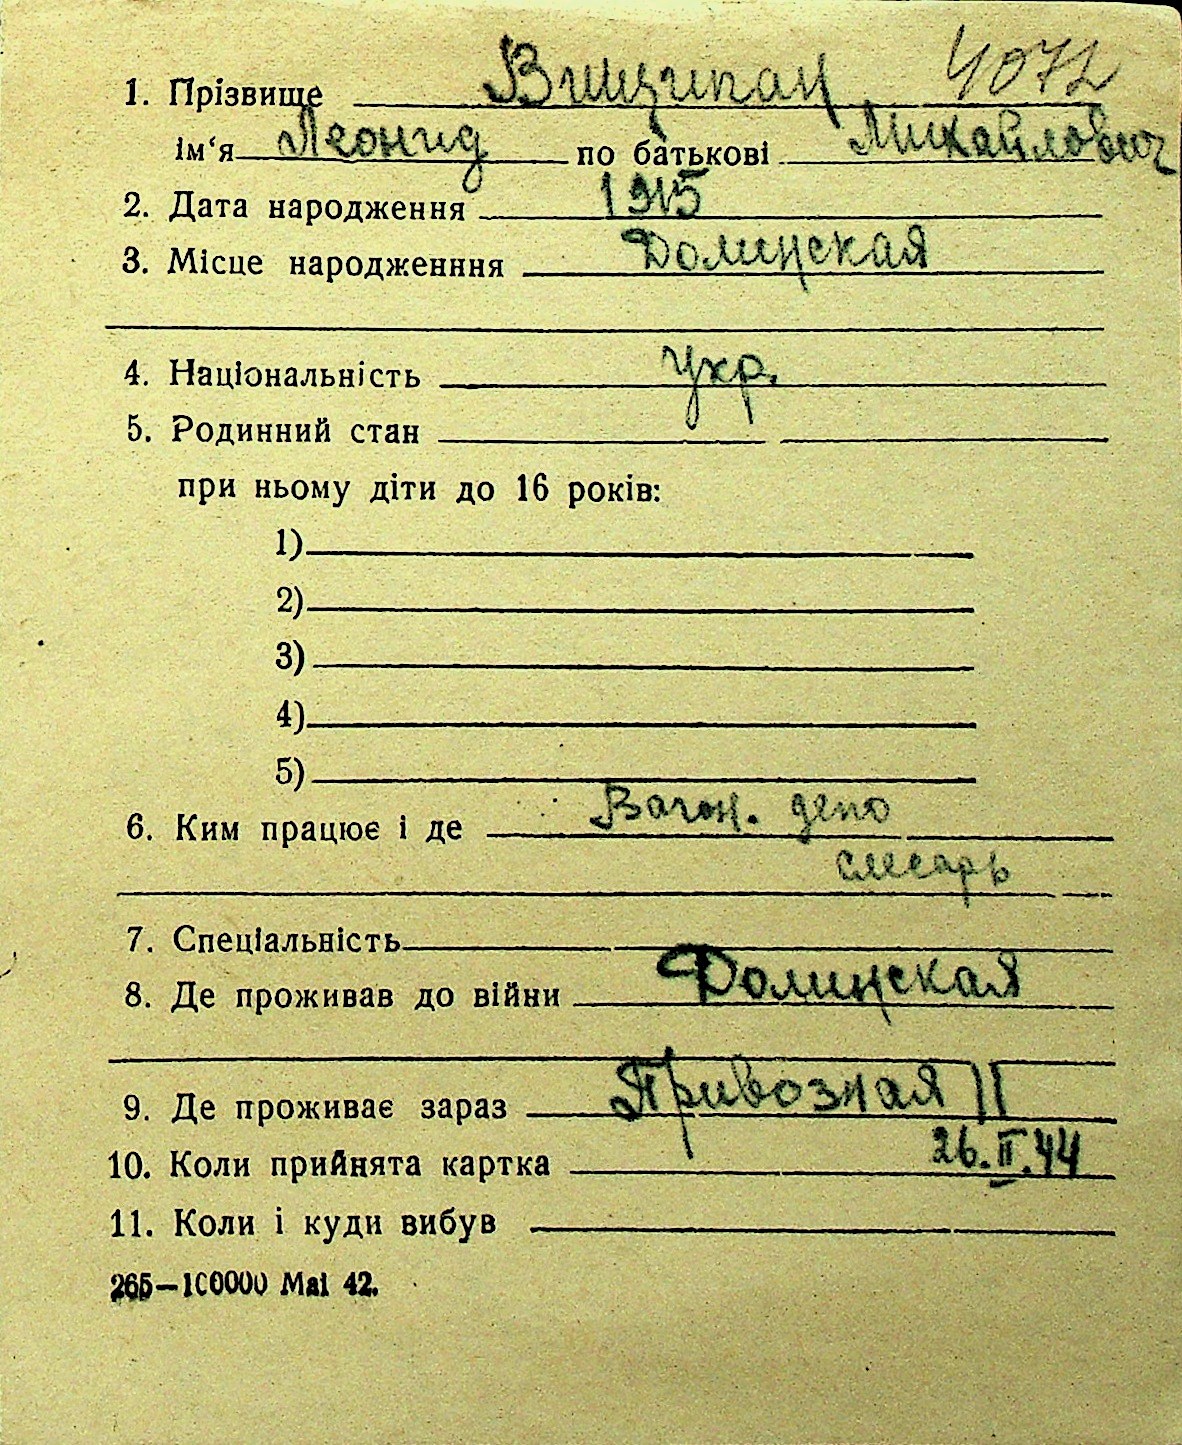 4072
1. Прізвище
ім‘я Леонид по батькові Михайлович
2. Дата народження 1915
3. Місце народженння Долинская
4. Національність Укр.
5. Родинний стан
при ньому діти до 16 років:
1)
2)
3)
4)
5)
6. Ким працює і де Вагон. депо
слесарь
7. Спеціальність
8. Де проживав до війни Долинская
9. Де проживає зараз Привозная 11
10. Коли прийнята картка 26.II.44
11. Коли і куди вибув
265—100000 Mai 42.